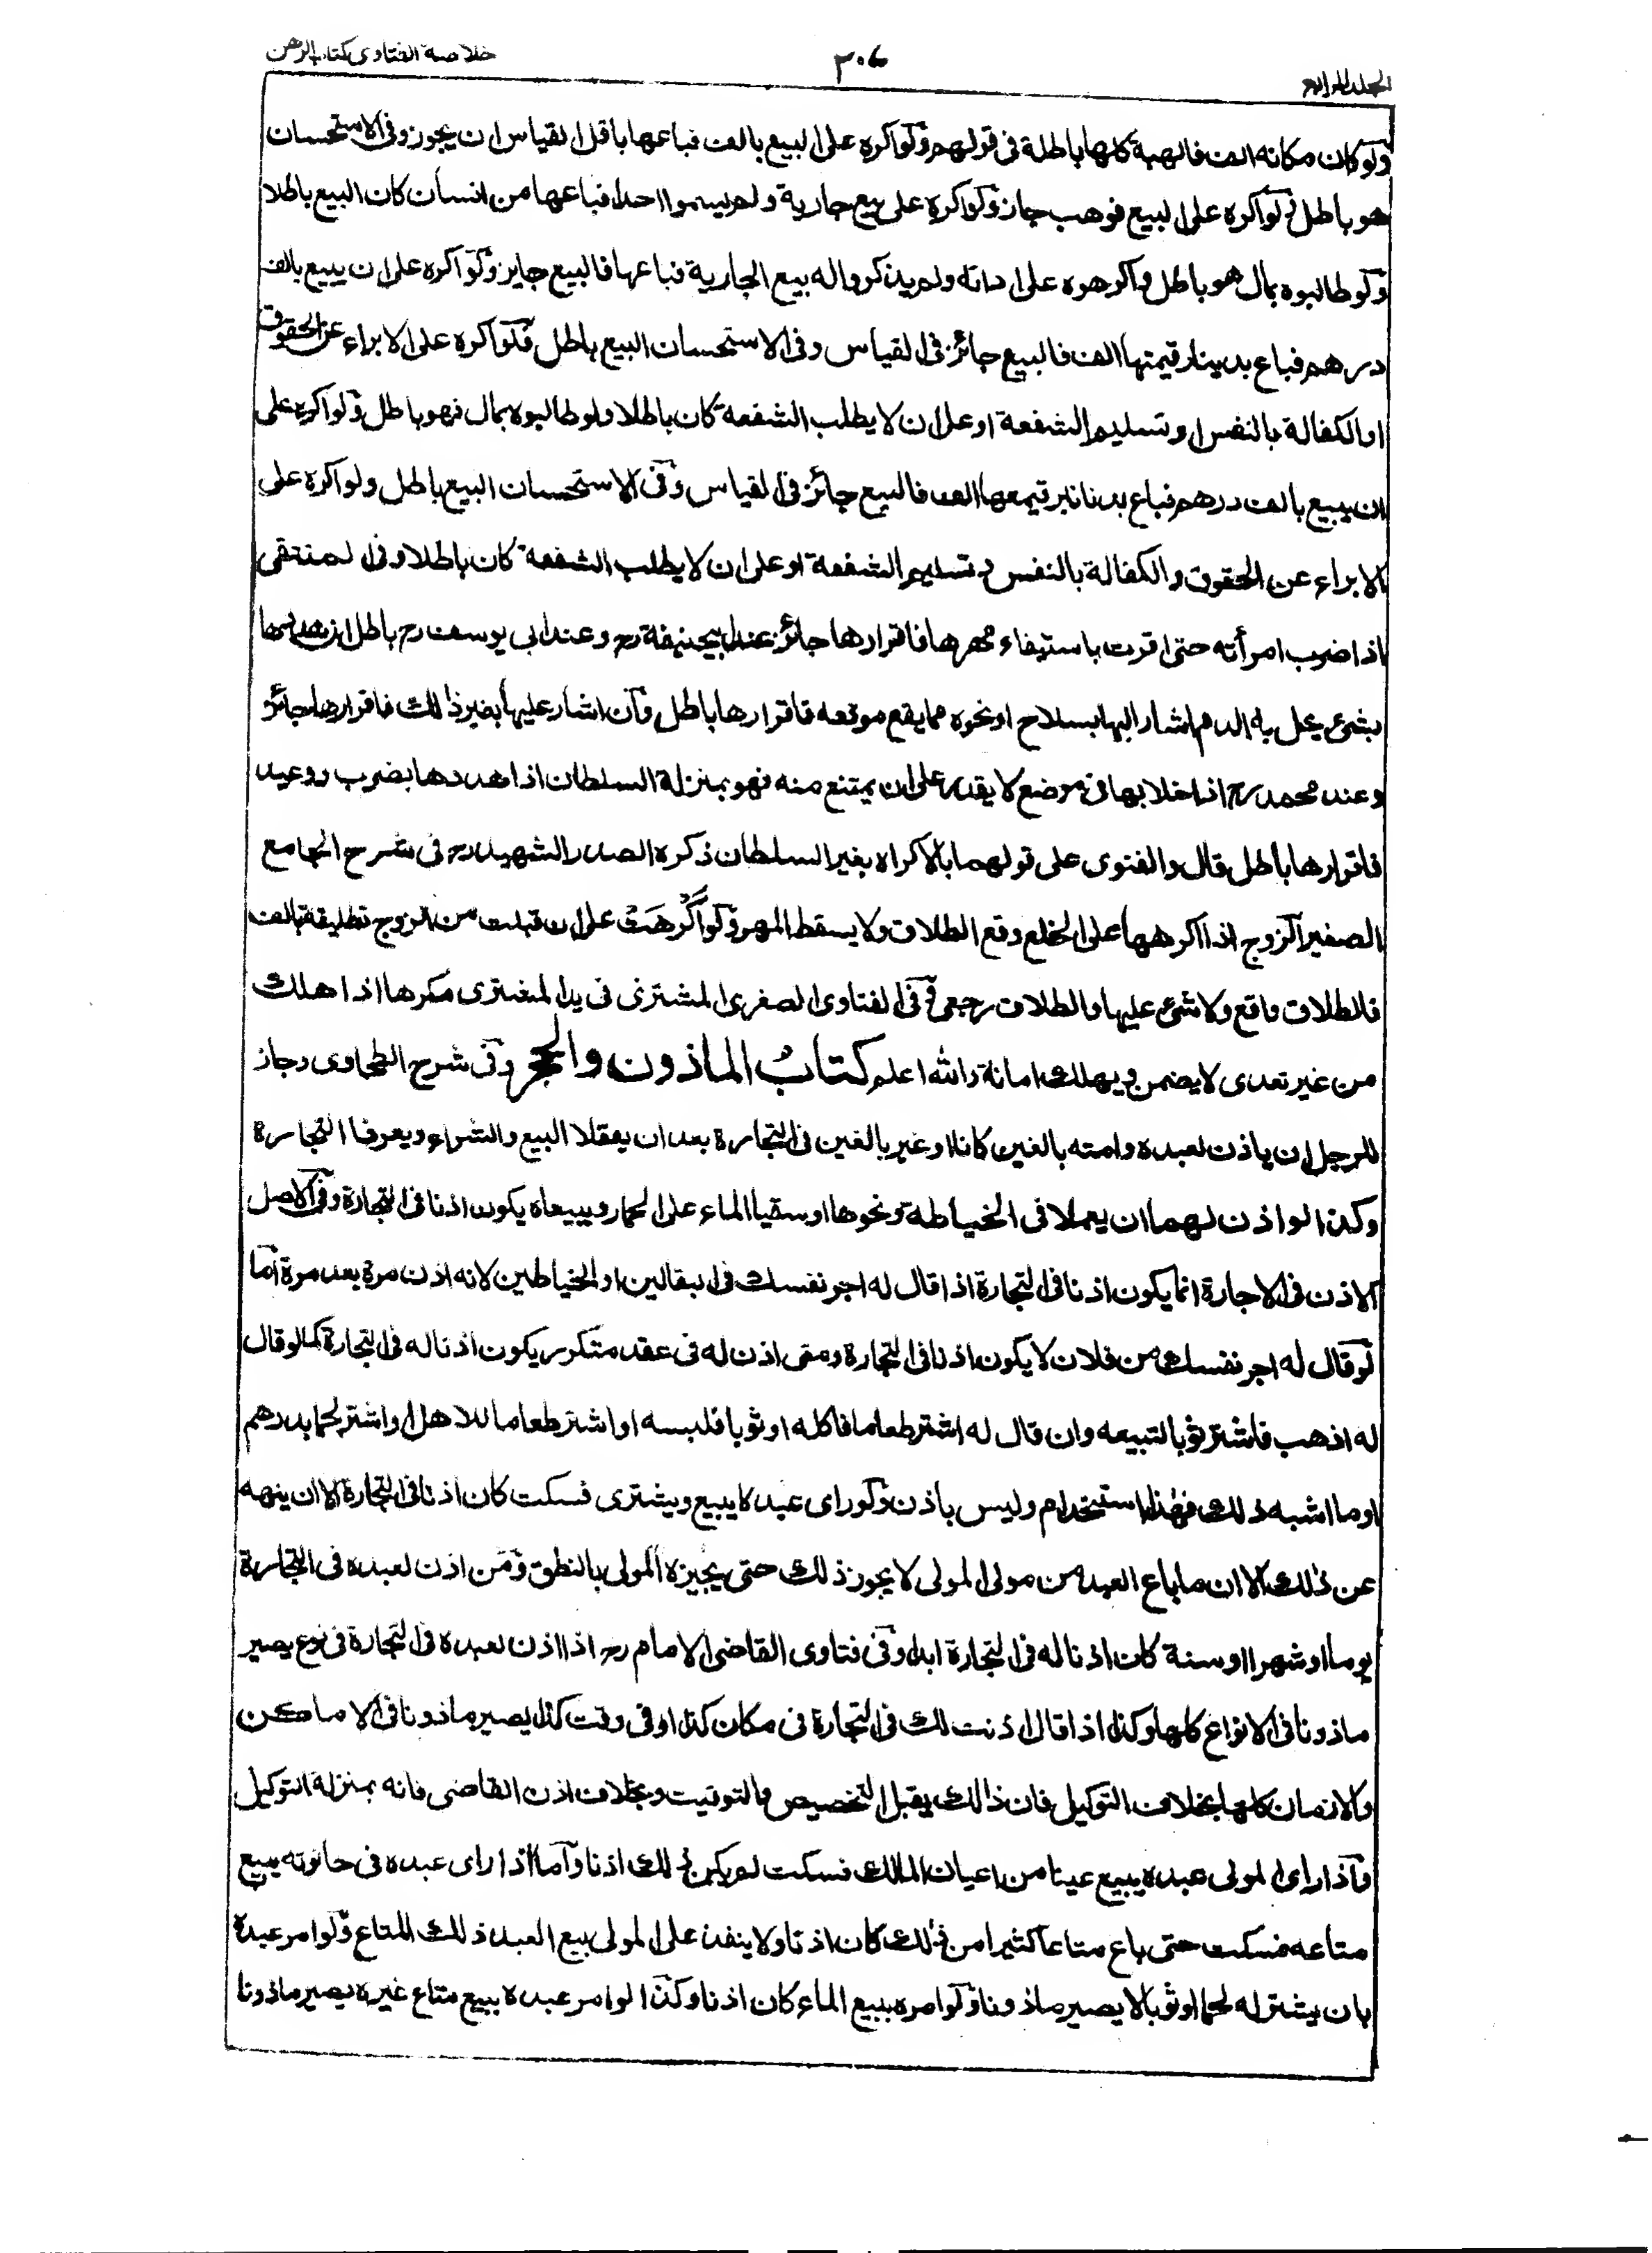 خلاصة الفتاوى كتاب الرهن
الجلد الرابع
ولو كان مكانه الف فالهبة كلها باطلة فى قولهم ولو اكره على البيع بالف فباعها باقل القياس ان يجوز وفى الاستحسان
هو باطل ولو اكره على البيع فوهب جاز ولو اكره على بيع جارية ولم يسموا احدا فباعها من انسان كان البيع باطلا
ولو طالبوه بمال هو باطل واكرهوه على ادائه ولم يذكروا له بيع الجارية فباعها فالبيع جايز ولو اكره على ان يبيع بالف
درهم فباع بدينار قيمتها الف فالبيع جائز فى القياس وفى الاستحسان البيع باطل فلو اكره على الابراء عن الحقوق
او الكفالة بالنفس او تسليم الشفعة او على ان لا يطلب الشفعة كان باطلا ولو طالبوه بمال فهو باطل ولو اكره على
ان يبيع بالف درهم فباع بدنانير قيمتها الف فالبيع جائز فى القياس وفى الاستحسان البيع باطل ولو اكره على
الابراء عن الحقوق والكفالة بالنفس و تسليم الشفعة او على ان لا يطلب الشفعة كان باطلا وفى المنتقى
اذا ضرب امرأته حتى اقرت باستيفاء مهرها فاقرارها جائز عند ابيحنيفة رح وعند ابى يوسف رح باطل ان هددها
بشئ يحل به الدم اشار اليها بسلاح او نحوه مما يقع موقعه فاقرارها باطل وان اشار عليها بغير ذالك فاقرارها جائز
وعند محمد رح اذا خلا بها فى موضع لا يقدر على ان يمتنع منه فهو بمنزلة السلطان اذا هددها بضرب ووعيد
فاقرارها باطل قال والفتوى على قولهما بالاكراه بغير السلطان ذكره الصدر الشهيد رح فى شرح الجامع
الصغير الزوج اذا اكرهها على الخلع وقع الطلاق ولا يسقط المهر ولو اُكْرِهَتْ على ان قبلت من الزوج تطليقة بالف
فالطلاق واقع ولا شئ عليها والطلاق رجعى وفى الفتاوى الصغرى المشترى فى يد المشترى مكرها اذا هلك
من غير تعدى لا يضمن ويهلك امانة والله اعلم كتابُ الماذون والحجر وفى شرح الطحاوى وجاز
للرجل ان ياذن لعبده وامته بالغين كانا او غير بالغين فى التجارة بعد ان يعقلا البيع والشراء ويعرفا التجارة
وكذا لو اذن لهما ان يعملا فى الخياطة ونحوها او سقيا الماء على الحمار ويبيعاه يكون اذنا فى التجارة وفى الاصل
الاذن فى الاجارة انما يكون اذنا فى التجارة اذا قال له اجر نفسك فى البقالين او الخياطين لانه اذن مرة بعد مرة اما
لو قال له اجر نفسك من فلان لا يكون اذنا فى التجارة ومتى اذن له فى عقد متكرر يكون اذنا له فى التجارة كما لو قال
له اذهب فاشتر ثوبا لتبيعه وان قال له اشتر طعاما فاكله او ثوبا فلبسه او اشتر طعاما للاهل او اشتر لحما بدرهم
او ما اشبه ذلك فهذا استخدام وليس باذن ولو راى عبد لا يبيع ويشترى فسكت كان اذنا فى التجارة الا ان ينهه
عن ذلك الا ان ما باع العبد من مولى المولى لا يجوز ذلك حتى يجيزه المولى بالنطق ومن اذن لعبده فى التجارة
يوما او شهرا او سنة كان اذنا له فى التجارة ابدا وفى فتاوى القاضى الامام رح اذا اذن لعبده فى التجارة فى نوع يصير
ماذونا فى الانواع كلها وكذا اذا قال اذنت لك فى التجارة فى مكان كذا او فى وقت كذا يصير ماذونا فى الاماكن
والازمان كلها بخلاف التوكيل فان ذالك يقبل التخصيص والتوقيت وبخلاف اذن القاضى فانه بمنزلة التوكيل
واذا راى المولى عبده يبيع عينا من اعيان المالك فسكت لم يكن ذلك اذنا واما اذا راى عبده فى حانوته يبيع
متاعه فسكت حتى باع متاعا كثيرا من ذلك كان اذنا ولا ينفذ على المولى بيع العبد ذلك المتاع ولو امر عبده
بان يشتر له لحما او ثوبا لا يصير ماذونا ولو امره ببيع الماء كان اذنا وكذا لو امر عبده ببيع متاع غيره يصير ماذونا